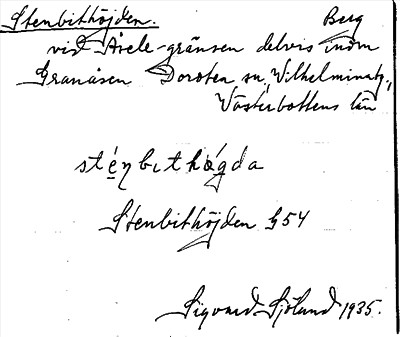 Stenbithöjden. Berg
vid Åsele-gränsen delvis inom
Granåsen Dorotea sn, Wilhelmina tg.,
Västerbottens län
sténbıthǫ́gda
Stenbithöjden G54
Sigvard Sjölund 1935.